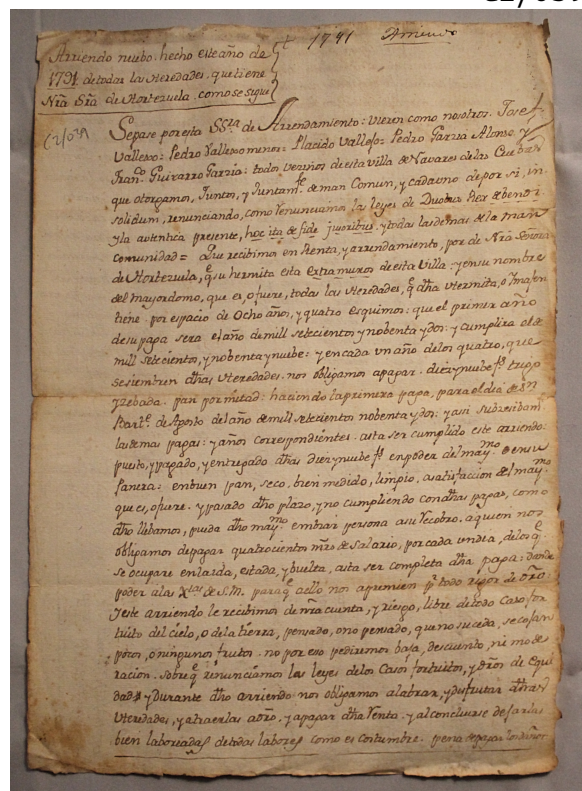 t 1791 Arriendo
Arriendo nuebo hecho este año de
1791. de todas las Heredades. que tiene
Nrã Srã de Hortezuela. como se sigue
C2/039
Sepase por esta SS.ra de Arrendamiento: Vieren como nosotros. Josef
Vallexo: Pedro Vallexo menor: Placido Vallejo: Pedro Garzia Alonso y
Fran.co Guixarro Garzia: todos vezinos de esta villa de Navares de las Cuebas
que otorgamos, Juntos, y Juntam.te de man Comun, y cada uno de por si, in
solidum, renunciando, como renunciamos las leyes de Duobus Rex debendi
y la autentica presente, hoc ita de fide jusoribus. y todas las demas de la man
comunidad = Que recibimos en Renta, y arrendamiento, por de Nrã Señora
de Hortezuela, q̃ su hermita esta extramuros de esta Villa: y en su nombre
del mayordomo, que es, o fuere, todas las Heredades, q̃ dha Hermita, o Imajen
tiene. por espacio de Ocho años, y quatro esquimos: que el primer año
de su paga sera el año de mill setecientos y nobenta y dos: y cumplira el de
mill setecientos, y nobenta y nuebe: y en cada un año de los quatro, que
se siembren dhas Heredades. nos obligamos a pagar. diez y nuebe f.s trigo
y zebada. pan por mitad: haciendo la primera paga, para el dia de Sn
Bart.e de Agosto del año de mill setecientos nobenta y dos: y asi subzesibam.te
las demas pagas: y años correspondientes. asta ser cumplido este arriendo:
puesto, y pagado, y entregado dhas diez y nuebe f.s en poder del may.mo o en su
panera: en buen pan, seco, bien medido, limpio, a satisfaccion del may.mo
que es, o fuere. y pasado dho plazo, y no cumpliendo con dhas pagas, como
dho llebamos, pueda dho may.mo embiar persona a su recobro. a quien nos
obligamos de pagar quatrocientos mrs de Salario, por cada un dia, de los q̃
se ocupare en la ida, estada, y buelta, asta ser completa dha paga: dando
poder a las de S.M. para q̃ a ello nos apremien p.r todo rigor de dro.
Y este arriendo le recibimos de nrã cuenta, y riesgo, libre de todo Caso for
tuito del cielo, o de la tierra, pensado, o no pensado, que no suceda, se cojan
pocos, o ningunos frutos. no por eso pediremos baja, descuento, ni mode
racion. sobre q̃ renunciamos las leyes de los Casos fortuitos, y dros de Equi
dad. y durante dho arriendo nos obligamos a labrar, y disfrutar dhas
Heredades, y a traerlas a dro, y a pagar dha renta. y al concluirse dejarlas
bien laboreadas de todas labores como es costumbre. pena de pagar los daños